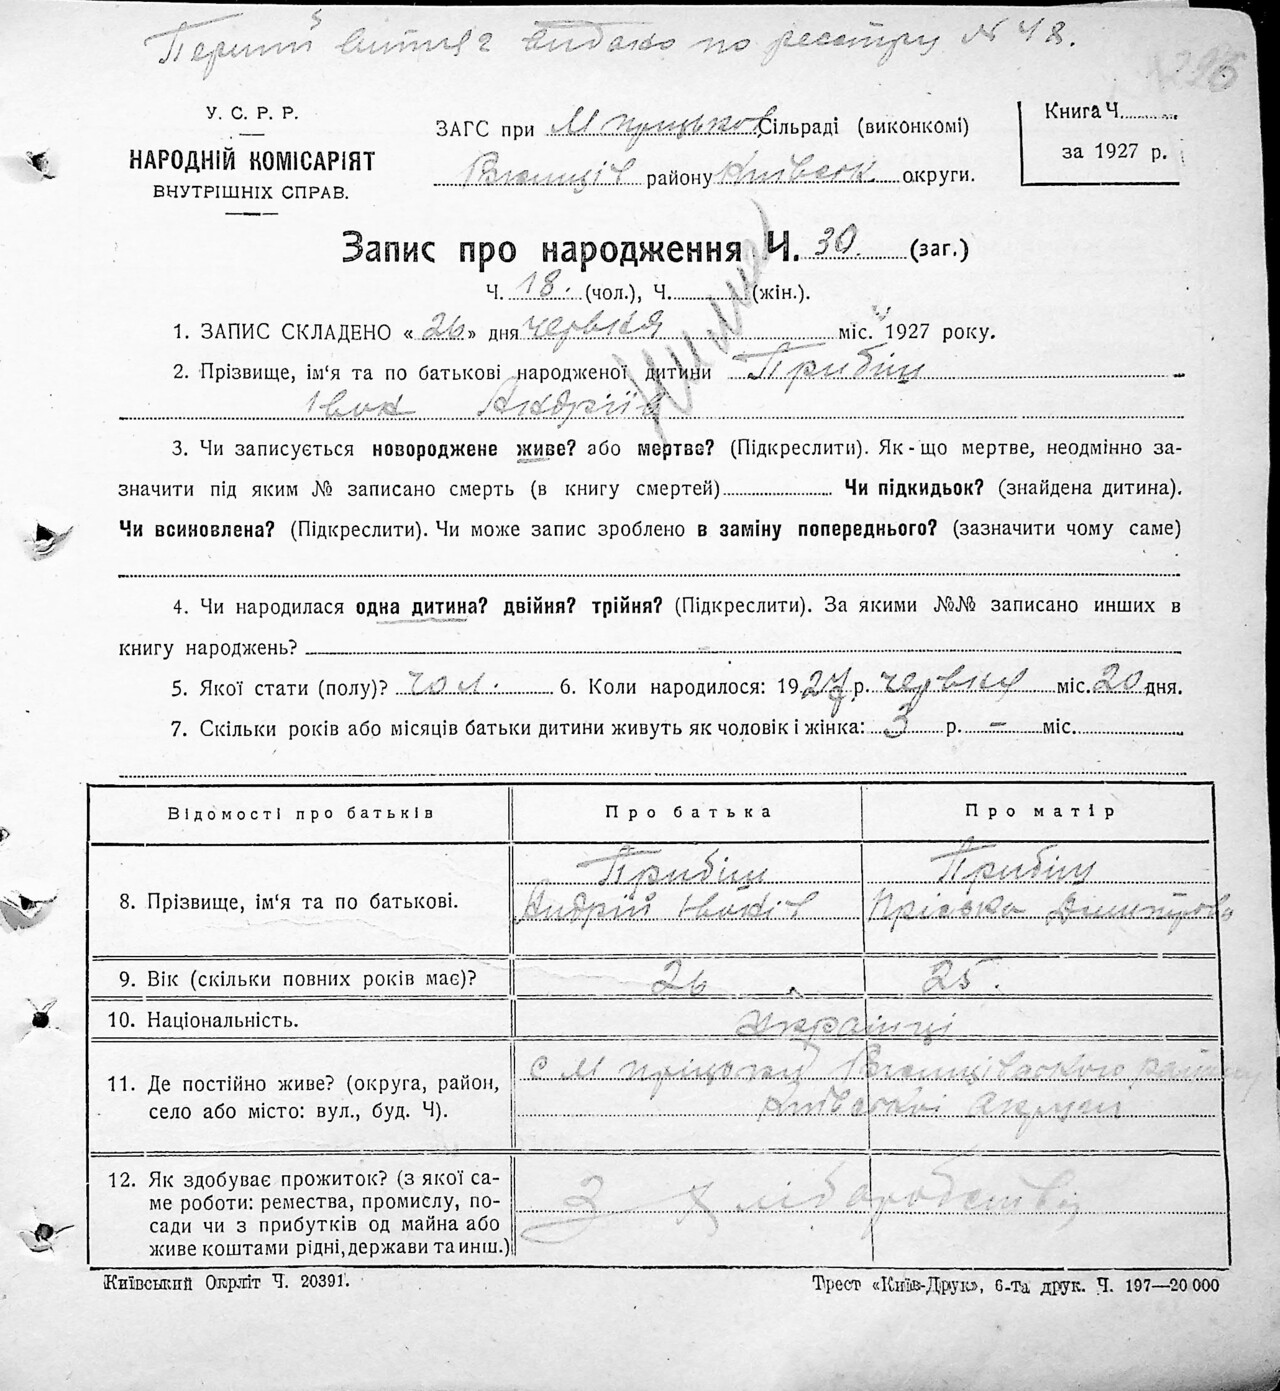 Перший витяг видано по реєстру № 48.
296
У. С. Р. Р.
НАРОДНІЙ КОМІСАРІЯТ
ВНУТРІШНІХ СПРАВ.
ЗАГС при М Сільраді (виконкомі)
району Київськ округи.
Книга Ч.
за 1927 р.
Запис про народження Ч. 30. (заг.)
Ч. 18. (чол.), Ч. (жін.).
1. ЗАПИС СКЛАДЕНО « 26 » дня червня міс. 1927 року.
2. Прізвище, ім‘я та по батькові народженої дитини Прибіш
Іван Андрія
3. Чи записується новороджене живе? або мертве? (Підкреслити). Як-що мертве, неодмінно за-
значити під яким № записано смерть (в книгу смертей) Чи підкидьок? (знайдена дитина).
Чи всиновлена? (Підкреслити). Чи може запис зроблено в заміну попереднього? (зазначити чому саме)
4. Чи народилася одна дитина? двійня? трійня? (Підкреслити). За якими №№ записано инших в
книгу народжень?
5. Якої стати (полу)? чол. 6. Коли народилося: 1927 р. червня міс. 20 дня.
7. Скільки років або місяців батьки дитини живуть як чоловік і жінка: 3 р. – міс.
Відомості про батьків Про батька Про матір
8. Прізвище, ім‘я та по батькові.
Прибіш Прибіш
Андрій Іванів Пріська Дмитрова
9. Вік (скільки повних років має)? 26 25.
10. Національність. Українці
11. Де постійно живе? (округа, район,
село або місто: вул., буд. Ч).
с М району
Київської округи
12. Як здобуває прожиток? (з якої са-
ме роботи: ремества, промислу, по-
сади чи з прибутків од майна або
живе коштами рідні, держави та инш.)
З хліборобства
Київський Окрліт Ч. 20391.
Трест «Київ-Друк», 6-та друк. Ч. 197—20 000